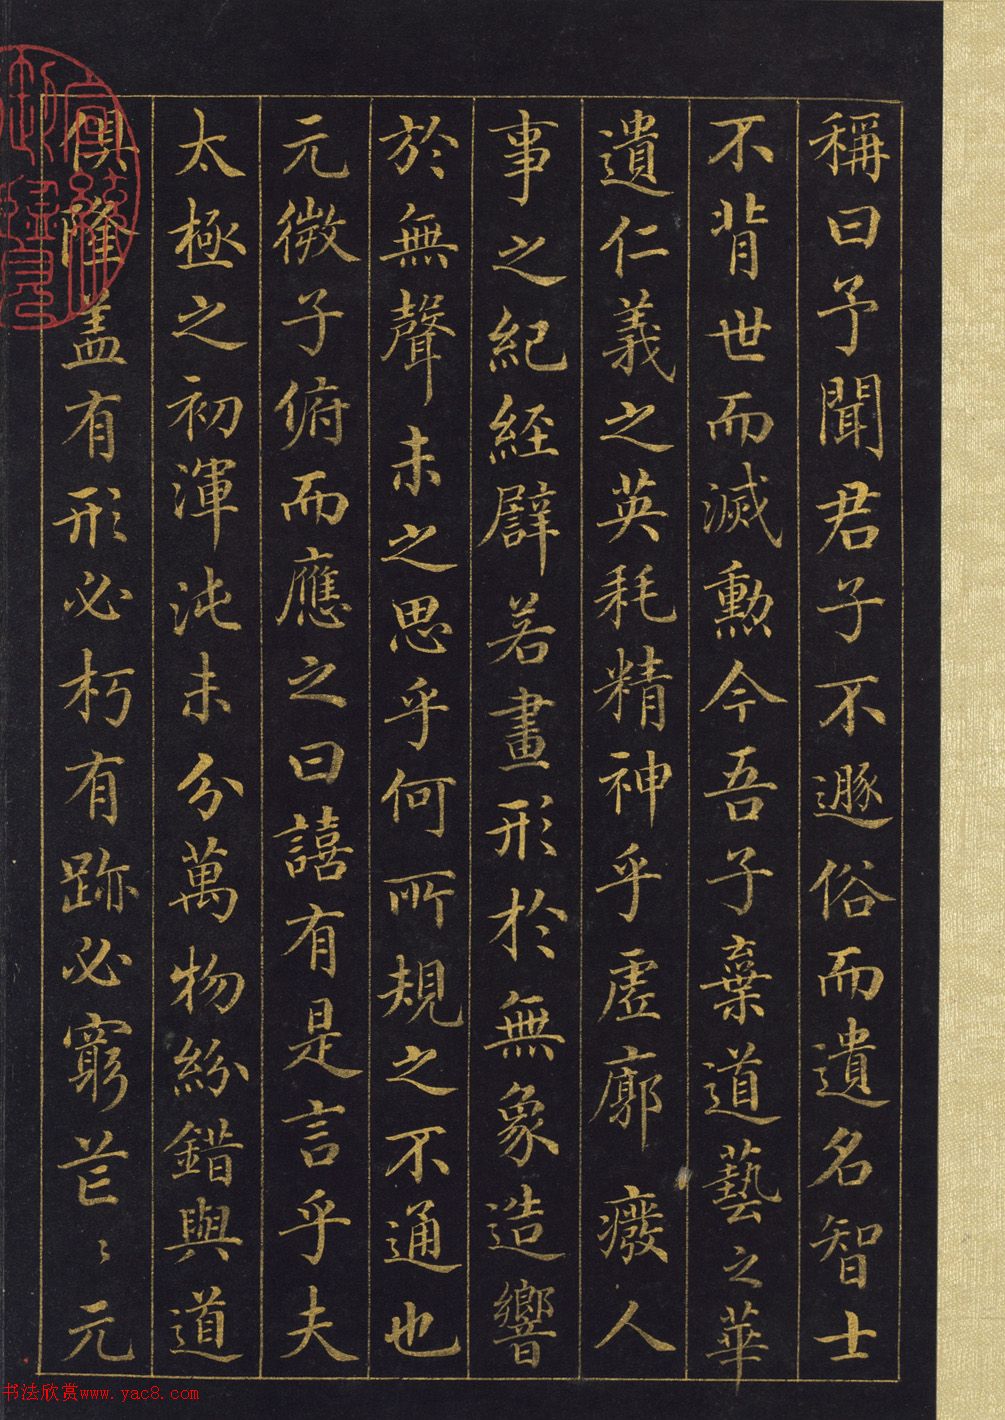 稱曰予聞君子不遯俗而遺名智士
不背世而滅勳今吾子棄道藝之華
遺仁義之英耗精神乎虛廓癈人
事之紀經譬若畫形於無象造響
於無聲未之思乎何所規之不通也
元微子俯而應之曰譆有是言乎夫
太極之初渾沌未分萬物紛錯與道
俱隆盖有形必朽有跡必窮茫〻元
书法欣赏www.yac8.com